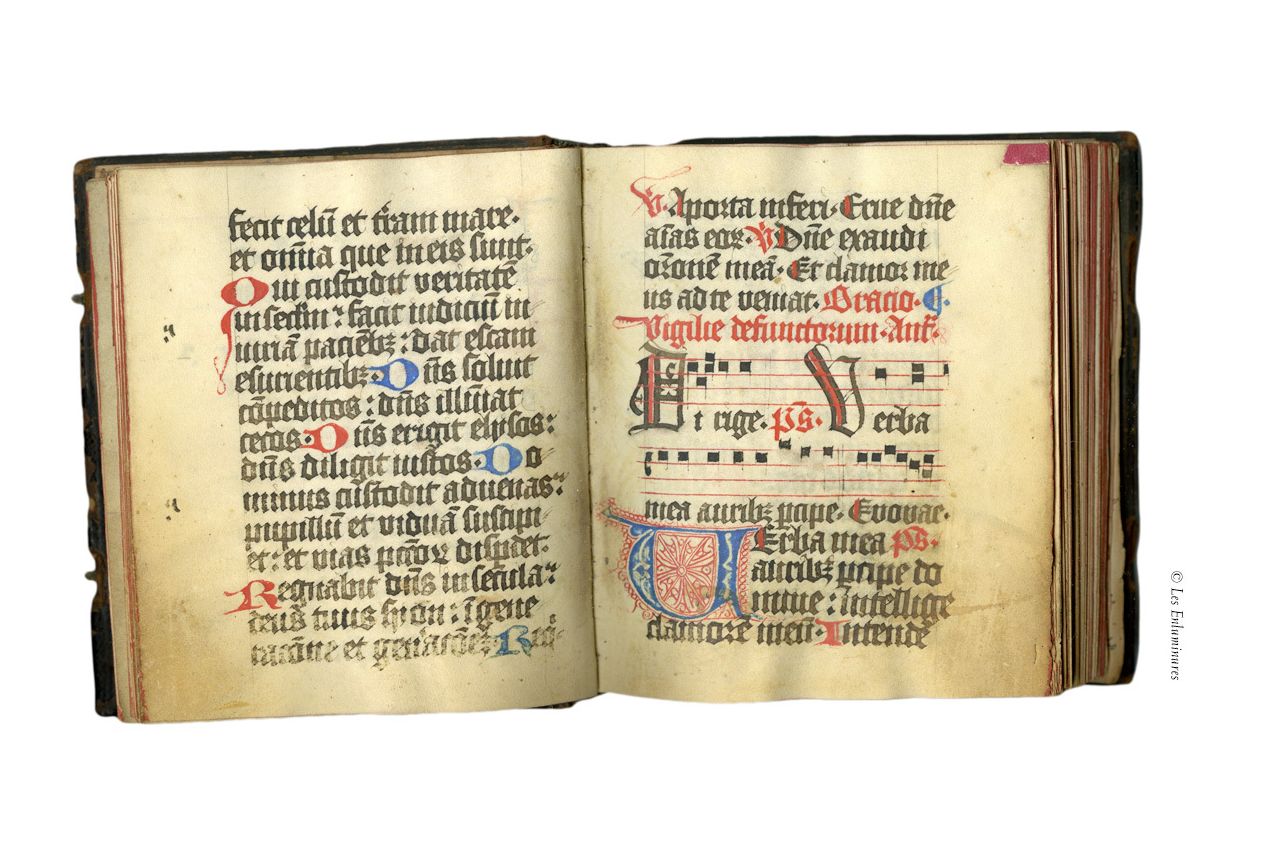 fecit celū et t̄ram mare.
et om̄ia que in eis sunt.
Qui custodit veritatē
in sc̄lm : facit iudiciū in
iuriā pacientibꝫ : dat escam
esurientibꝫ. Dn̄s soluit
cōpeditos : dn̄s illūīat
cecos. Dn̄s erigit elisos :
dn̄s diligit iustos. Do
minus custodit aduenas :
pupillū et viduā suscipi
et : et vias pctōꝝ disp̄det.
Regnabit dn̄s in secula :
deus tuus syon : in gene
racōne et
V. A porta inferi. Erue dn̄e
aīas eoꝝ. V Dn̄e exaudi
orōnē meā. Et clamor me
us ad te veniat. Oracio. ¶
Vigilie defunctorum. Ant̄.
Dirige. ps̄. Verba
mea auribꝫ p̄cipe. Euouae.
Verba mea ps̄.
auribꝫ p̄cipe do
mine : intellige
clamorē meū. Intende
© Les Enluminures